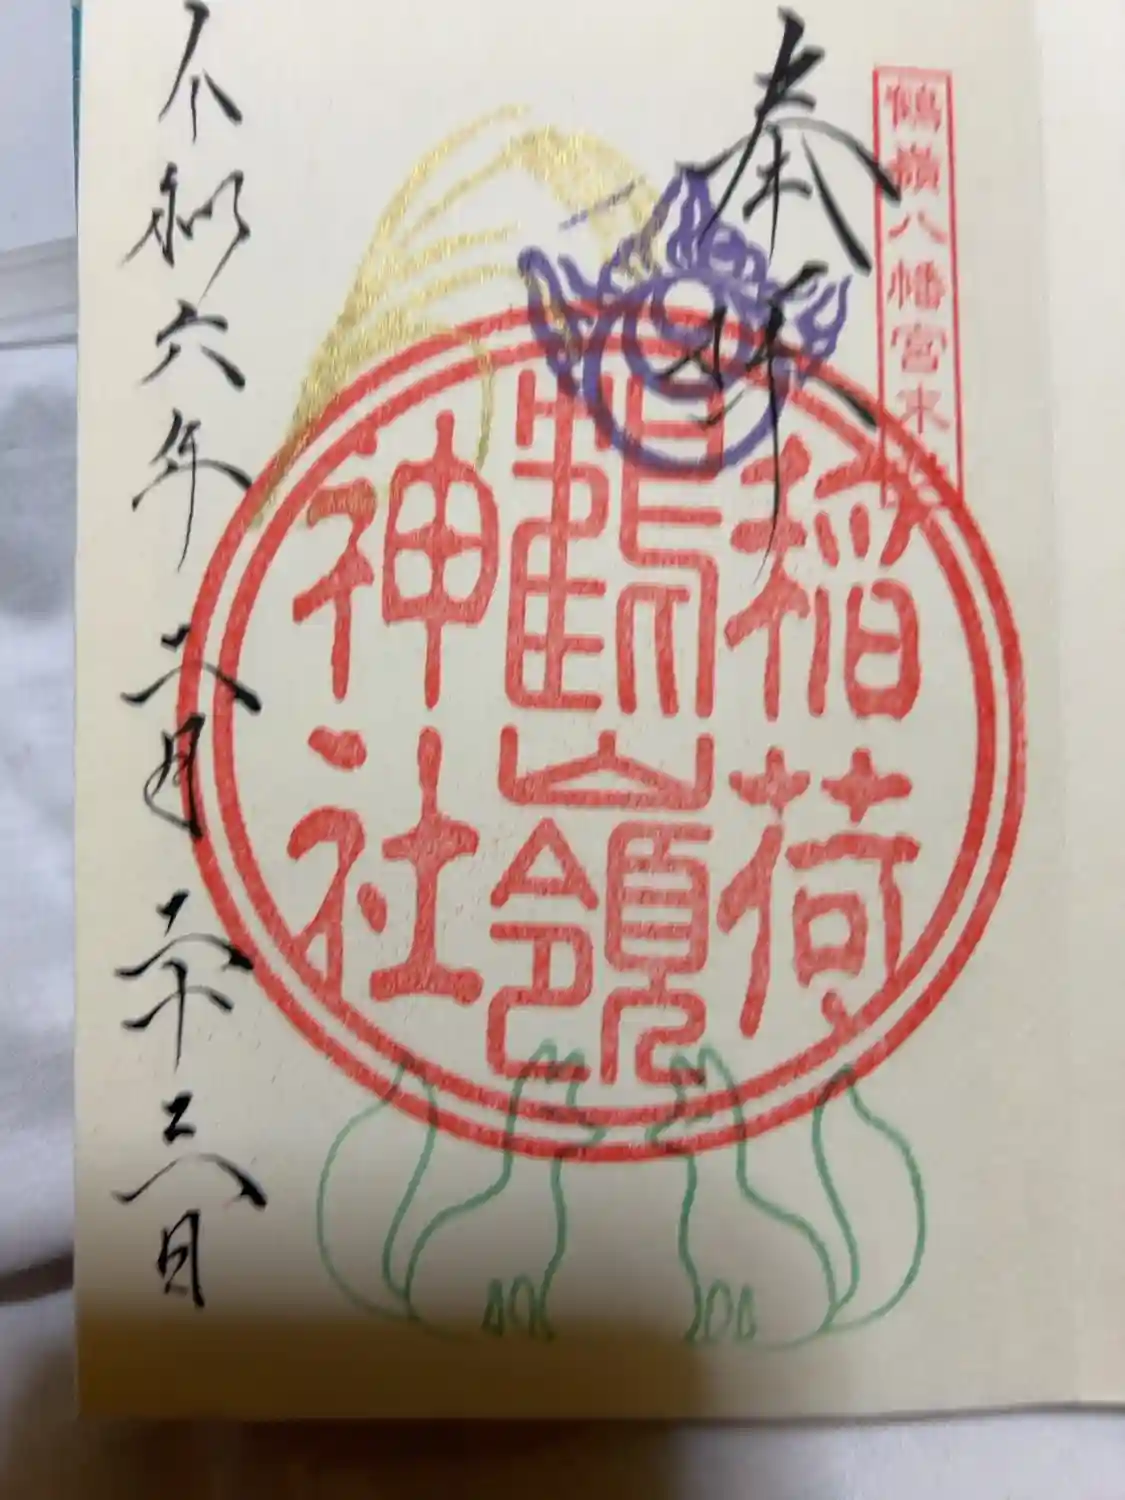 鶴嶺八幡宮末社
奉拝
稲荷
鶴嶺
神社
令和六年二月二十二日